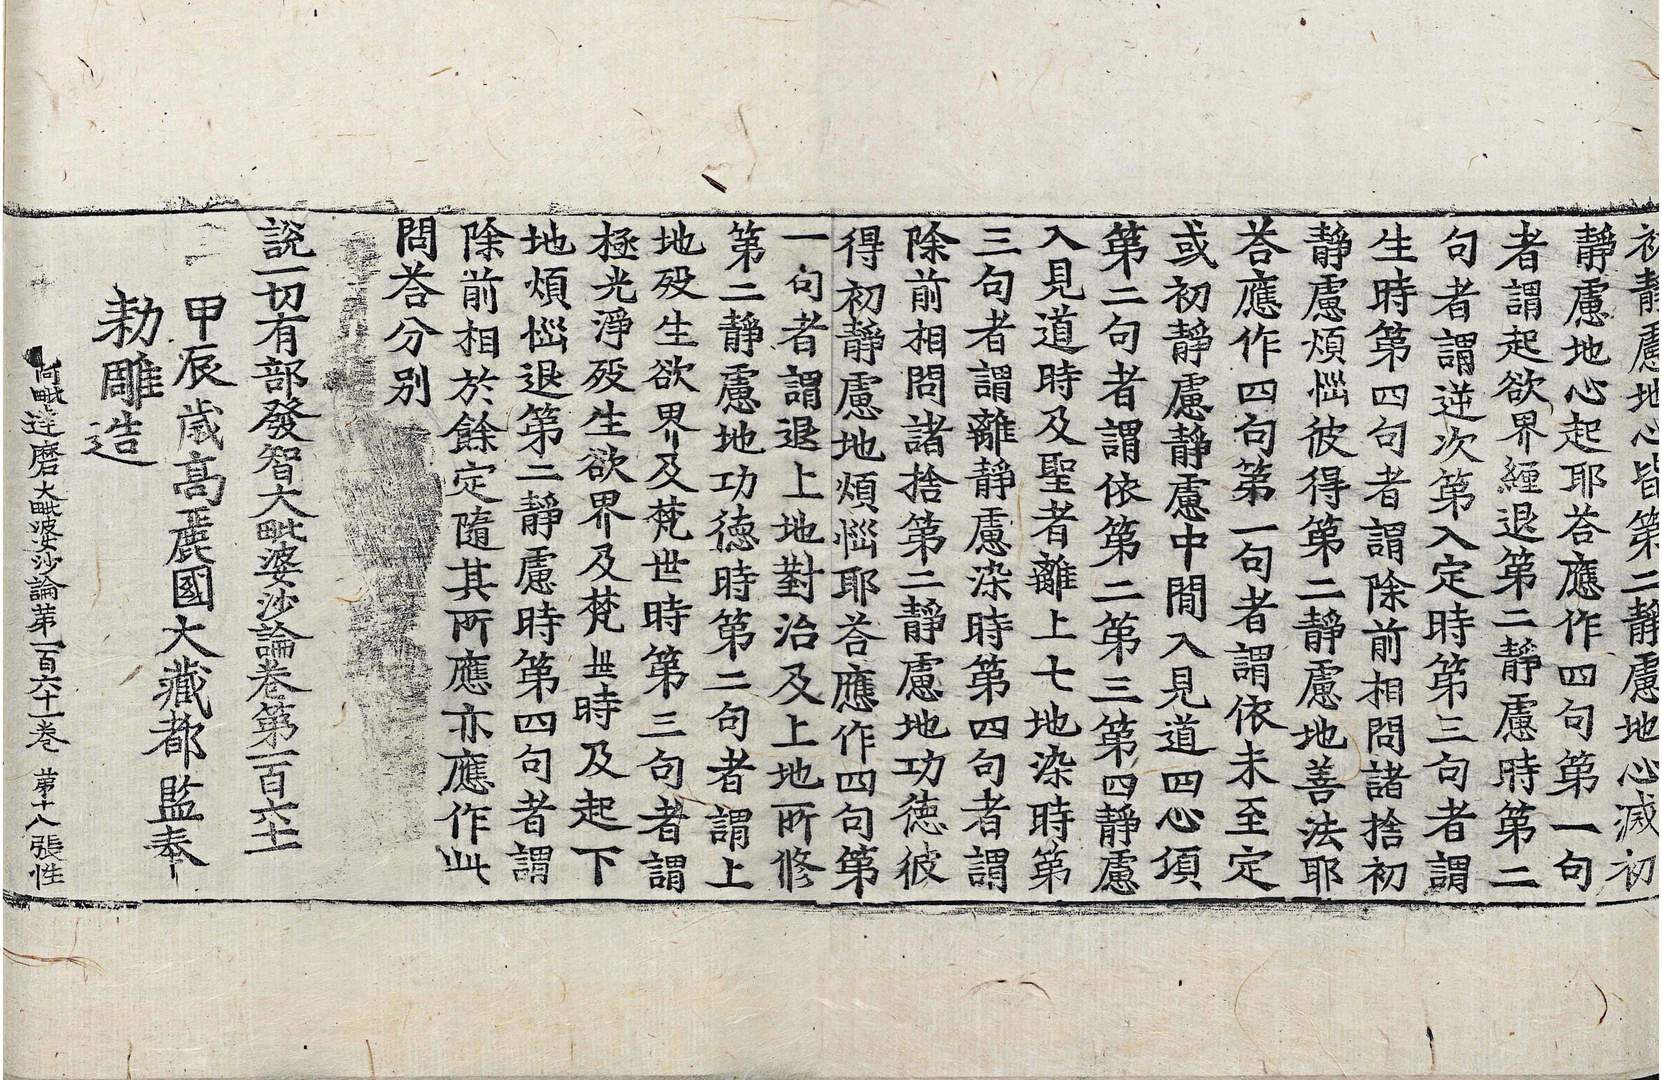 初靜慮地心皆第二靜慮地心滅初
靜慮地心起耶荅應作四句第一句
者謂起欲界纒退第二靜慮時第二
句者謂逆次第入定時第三句者謂
生時第四句者謂除前相問諸捨初
靜慮煩惱彼得第二靜慮地善法耶
荅應作四句第一句者謂依未至定
或初靜慮靜慮中閒入見道四心項
第二句者謂依第二第三第四靜慮
入見道時及聖者離上七地染時第
三句者謂離靜慮染時第四句者謂
除前相問諸捨第二靜慮地功德彼
得初靜慮地煩惱耶荅應作四句第
一句者謂退上地對治及上地所修
第二靜慮地功德時第二句者謂上
地歿生欲界及梵世時第三句者謂
極光淨歿生欲界及梵世時及起下
地煩惱退第二靜慮時第四句者謂
除前相於餘定隨其所應亦應作此
問荅分別
說一切有部發智大毗婆沙論卷第一百六十一
甲辰歲高麗國大藏都監奉
勅雕造
阿毗達磨大毗婆沙論第一百六十一卷 第十八張性